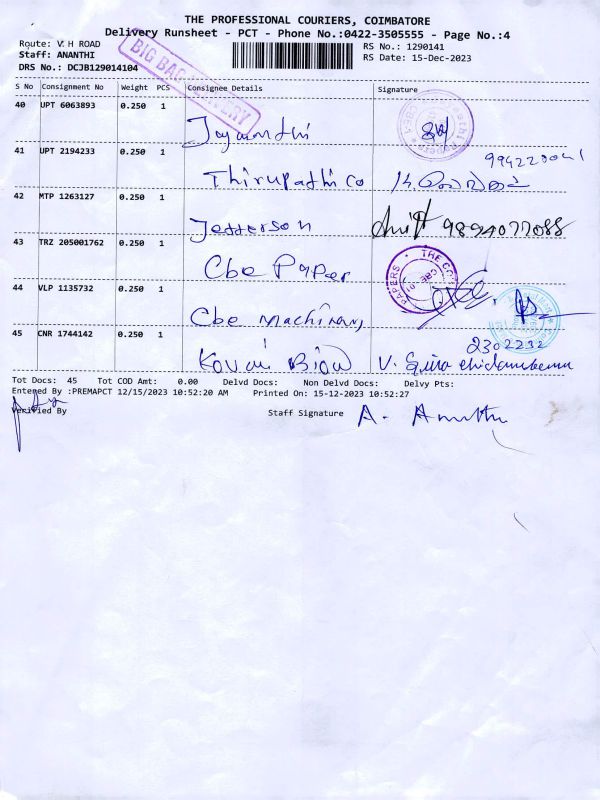 THE PROFESSIONAL COURIERS, COIMBATORE
Delivery Runsheet - PCT - Phone No.:0422-3505555 - Page No.:4
Route: V.H ROAD
RS No.: 1290141
Staff: ANANTHI
RS Date: 15-Dec-2023
DRS No.: DCJB129014104
BIG BAG DELIVERY
S No Consignment No Weight PCS Consignee Details Signature
40 UPT 6063893 0.250 1
Jayanthi
41 UPT 2194233 0.250 1
Thirupathi Co
42 MTP 1263127 0.250 1
Jefferson 9894077088
43 TRZ 205001762 0.250 1
Cbe Paper
PAPERS • THE
44 VLP 1135732 0.250 1
Cbe Machinary
45 CNR 1744142 0.250 1
2302232
Kovai V.
Tot Docs: 45 Tot COD Amt: 0.00 Delvd Docs: Non Delvd Docs: Delvy Pts:
Entered By :PREMAPCT 12/15/2023 10:52:20 AM Printed On: 15-12-2023 10:52:27
Verified By
Staff Signature A.